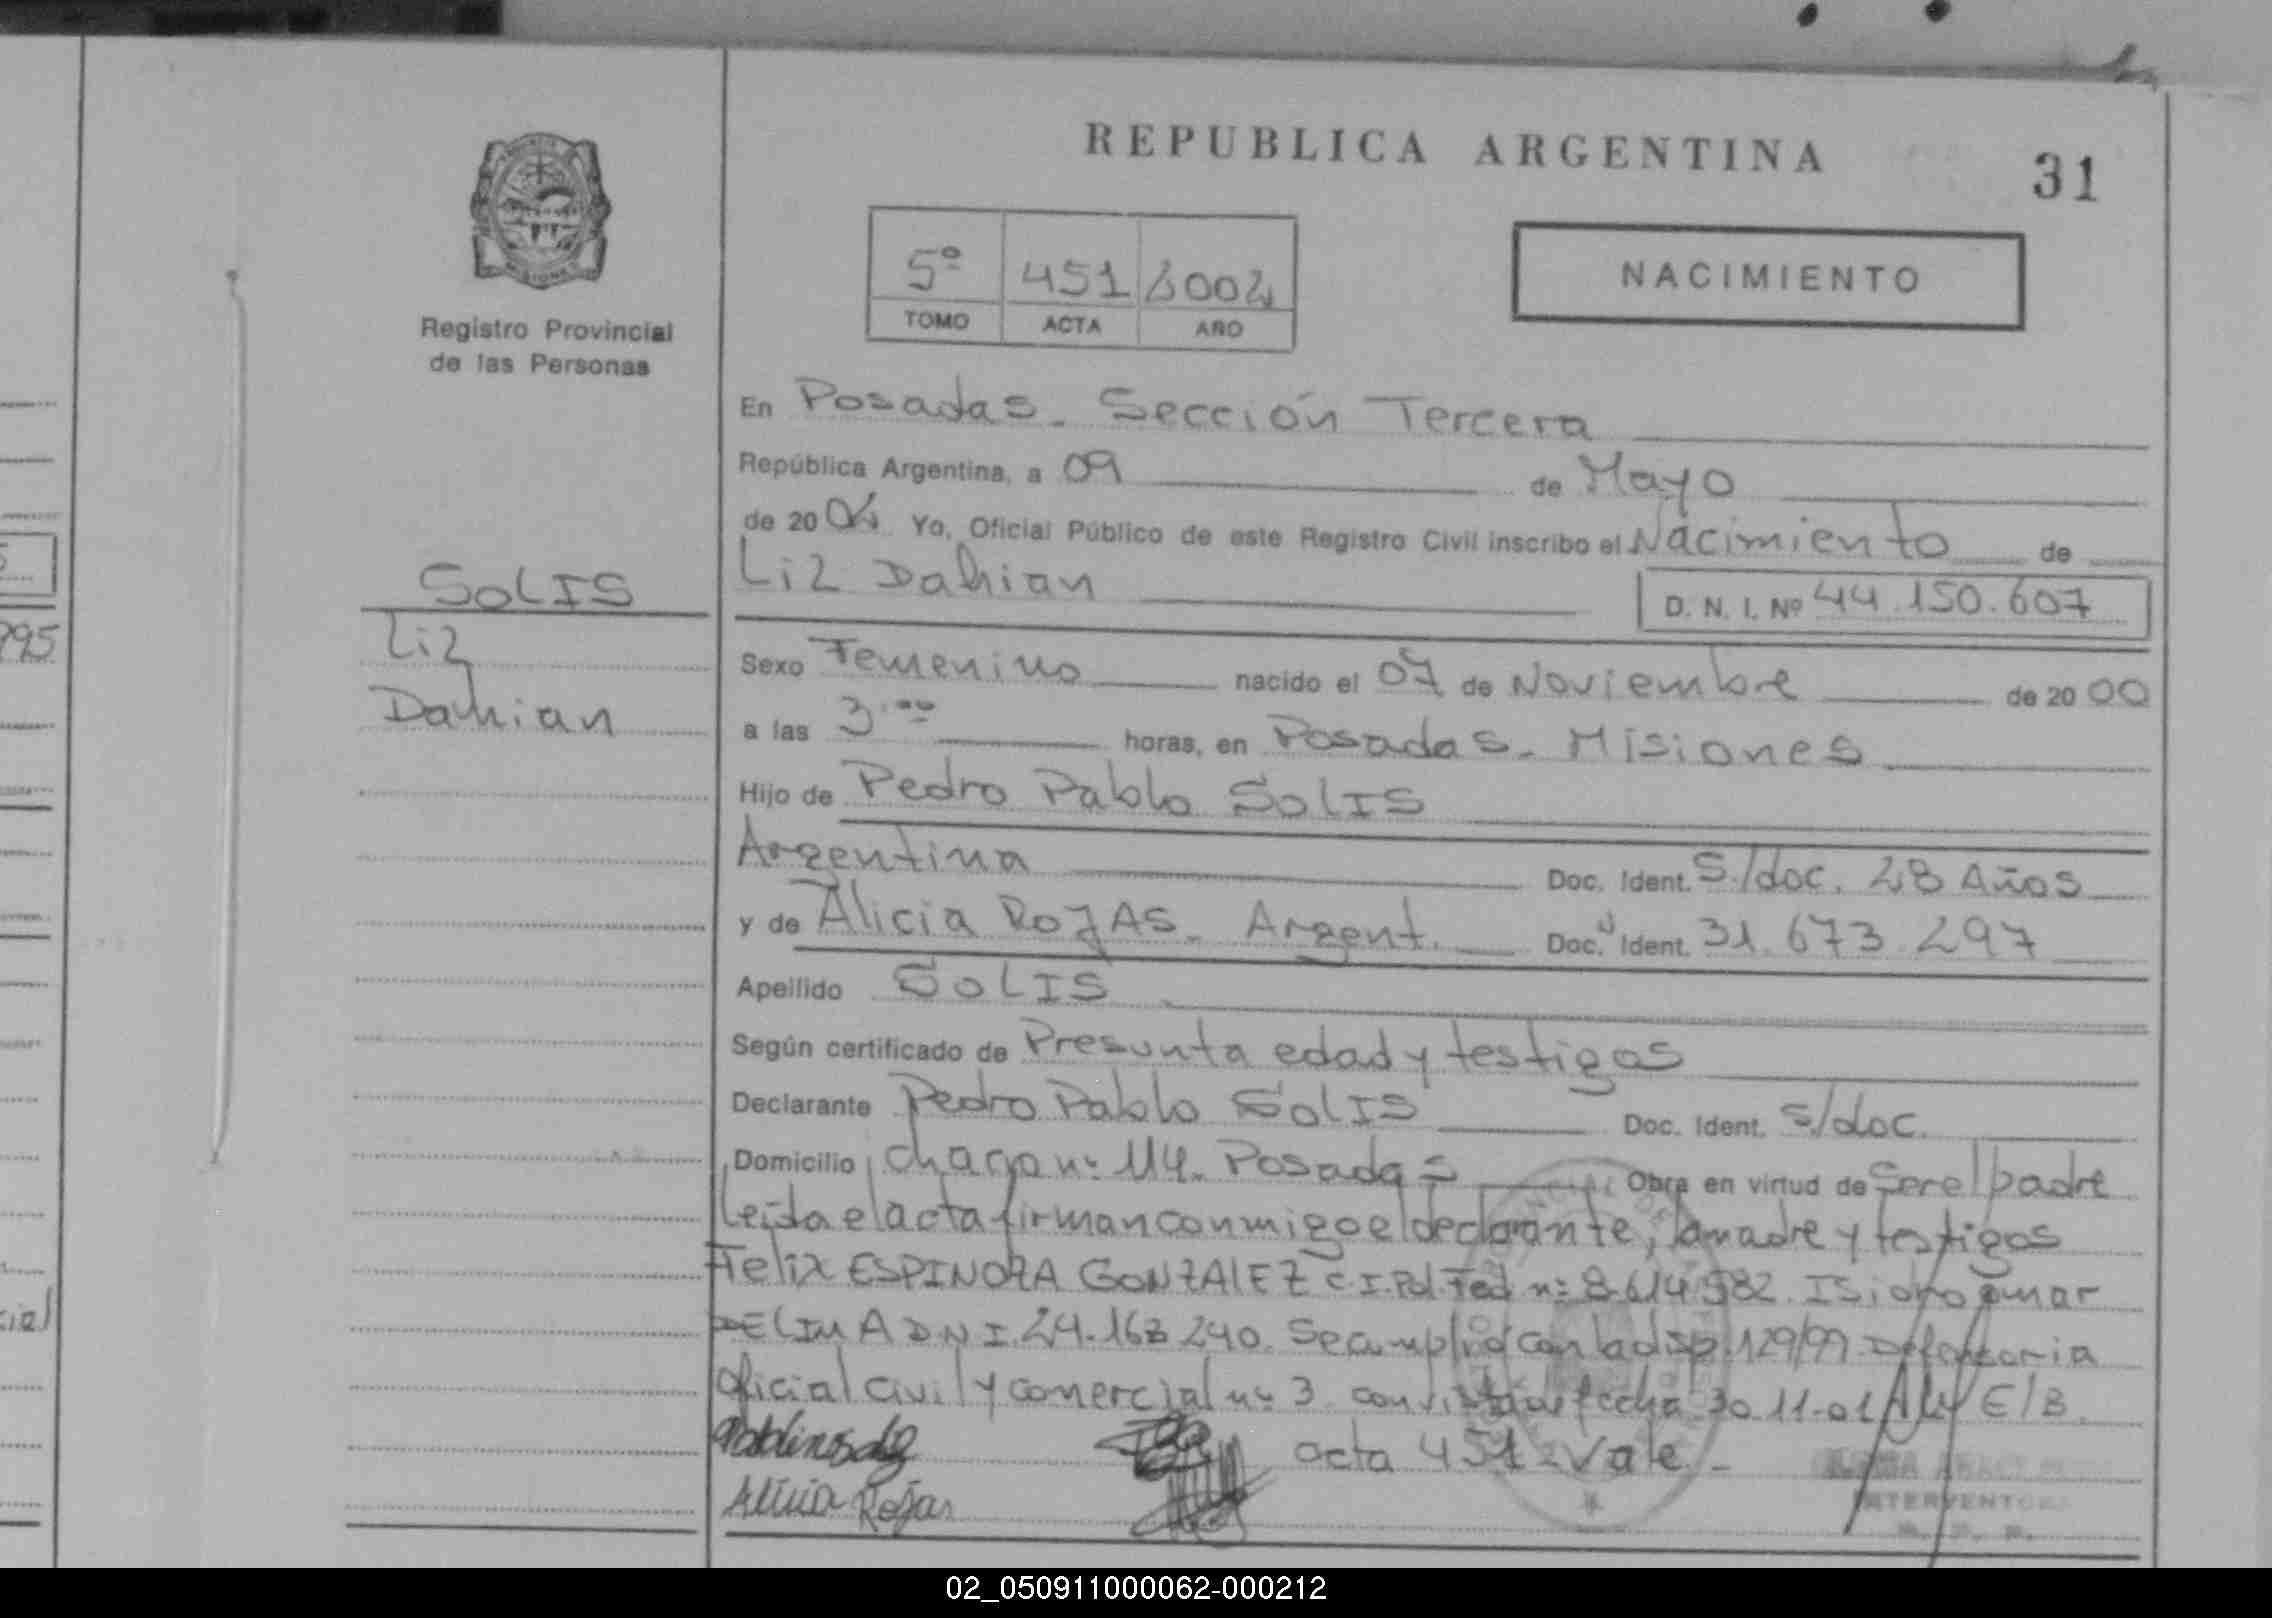 REPUBLICA ARGENTINA
31
5º 451 2002
TOMO ACTA AÑO
NACIMIENTO
Registro Provincial
de las Personas
En Posadas. Sección Tercera
República Argentina, a 09 de Mayo
de 2002 Yo, Oficial Público de este Registro Civil inscribo el Nacimiento de
Liz Dahian
D. N. I. Nº 44.150.607
SOLIS
Liz
Dahian
795
Sexo Femenino nacido el 07 de Noviembre de 2000
a las 3 horas, en Posadas. Misiones
Hijo de Pedro Pablo SOLIS
Argentina Doc. Ident. S./doc. 28 Años
y de Alicia ROJAS. Argent. Doc. Ident. 31.673.297
Apellido SOLIS
Según certificado de Presunta edad y testigos
Declarante Pedro Pablo SOLIS Doc. Ident. s/doc.
Domicilio chacra nº 114. Posadas Obra en virtud de ser el padre
leída el acta firman conmigo el declarante, la madre y testigos
Felix ESPINOZA GONZALEZ C.I. Pol. Fed nº 8.614.582. Isidro omar
DELIMA DNI 24.163.240. Se cumplió con la disp. 129/99 Defensoria
oficial civil y comercial nº 3 con vista de fecha 30.11.01 E/B.
acta 451 = Vale. -
Alicia Rojas
INTERVENTORA
02_050911000062-000212